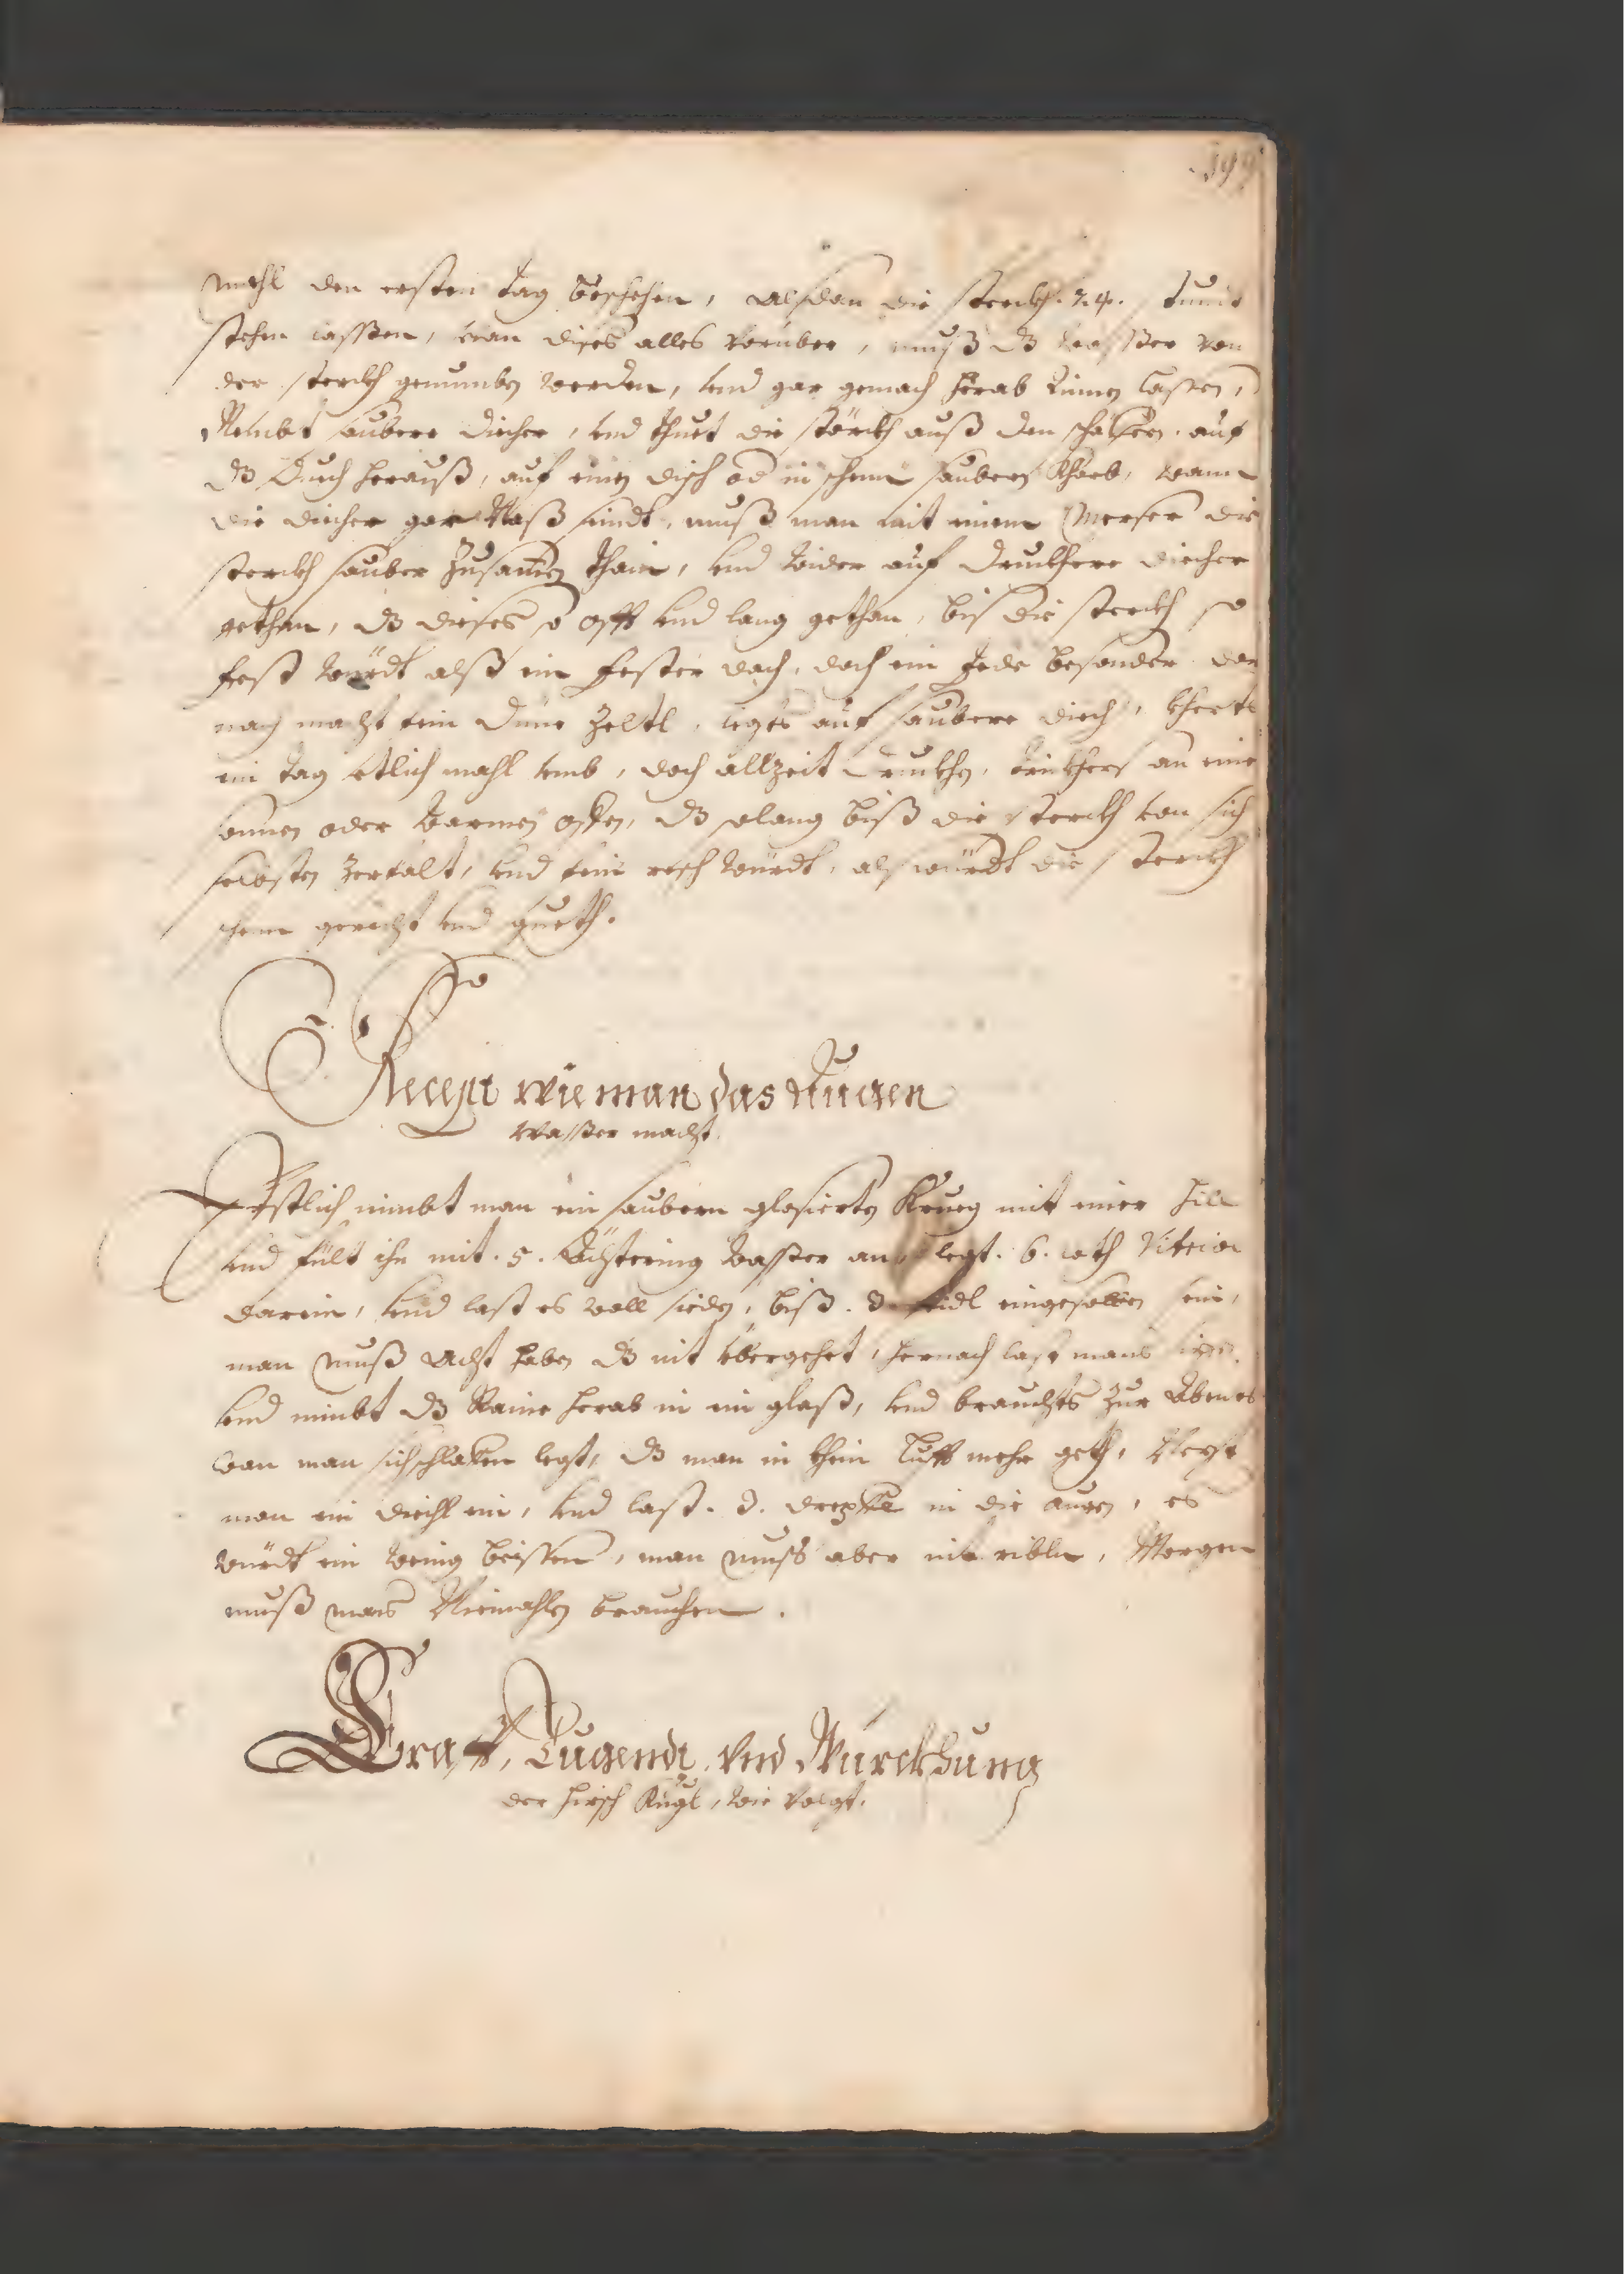 199
mahl den ersten tag beschehen, alsdan die sterckh .24. stundt
stehen lassen, wan dises alles vorüber, muß dz wasser von
der sterckh genumben werden, vnd gar gemach herab rinnen lassen,
Nembt saubere diecher, vnd thuet die störckh auß den schäffern auf
dz duech herauß, auf einen disch od in schene saubern Khorb, wann
die diecher gar Naß sindt, muß man mit einem Messer die
sterckh sauber zusamen thain, vnd wider auf druckhene diecher
gethan, dz dieses so offt vnd lang gethan, bis die sterckh so
fest würdt alß ein fester dach, doch ein jede besonder dar
nach macht fein düne Zeltl, legts auf saubere diech, kherts
im tag etlich mahl vmb, doch allzeit druckhen, trückhers an eine
sonnen oder warmen offen, dz solang biß die sterckh von sich
selbsten zerfält, vnd fein resch würdt, als würdt die sterckh
schenn gerecht vnd gueth.
Recept wie man das Augen
wasser macht.
Erstlich nimbt man ein saubern glasierten Krueg mit einer hill
vnd fült ihn mit .5. Ächtering wasser an legt .6. loth Vitriol
darein, vnd last es woll sieden, biß .3. seidl eingesotten sein,
man muß acht haben dz nit übergehet, hernach last mans
vnd nimbt dz Raine herab in ein glaß, vnd brauchts zur Abents
wan man sich schlaffen legt, dz man in khein lufft mehr geth,
man ein diechl ein, vnd last .3. drepffl in die augen, es
würdt ein wenig beissen, man muß aber nit ribln, Morgen
muß mans Niemahlen brauchen.
Krafft, Tugendt, vnd Würckhung
der hirsch Kugl, wie volgt.